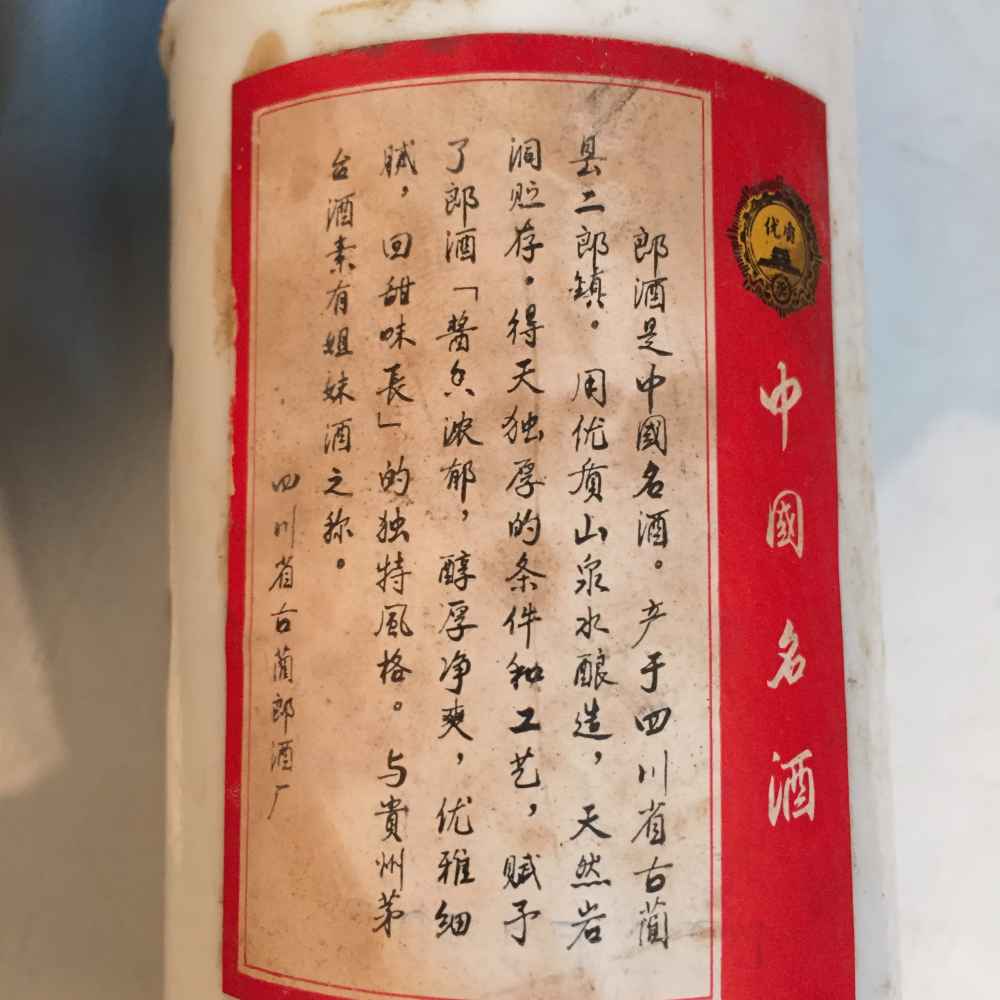 中國名酒
优质
郎酒是中國名酒。产于四川省古蔺
县二郎鎮。用优质山泉水酿造，天然岩
洞贮存。得天独厚的条件和工艺，赋予
了郎酒「酱香浓郁，醇厚净爽，优雅细
腻，回甜味長」的独特風格。与貴州茅
台酒素有姐妹酒之称。
四川省古蔺郎酒厂